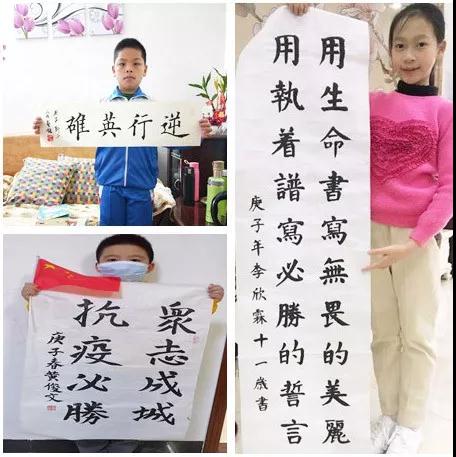 逆行英雄
衆志成城
抗疫必勝
庚子春黄俊文
用生命書寫無畏的美麗
用執着譜寫必勝的誓言
庚子年李欣霖十一歲書